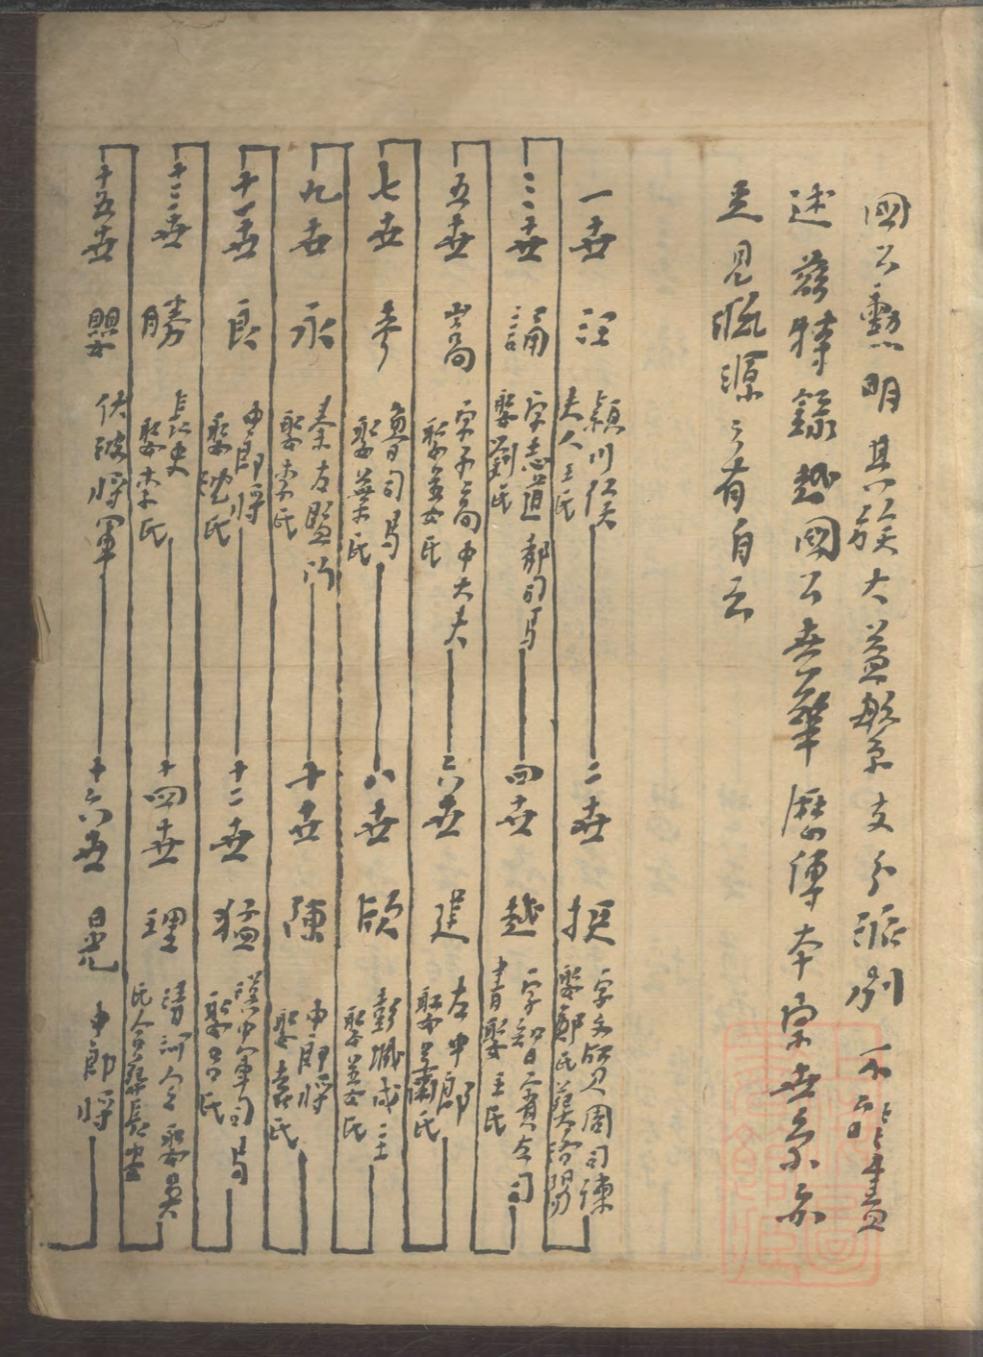 國公勲明其族大益繁支分派別不能盡
述茲特錄越國公世華歷傳本宗世系亦
足見派源之有自云
一世 汪 潁川侯 夫人王氏
二世 挺 字 周司諫 娶鄭氏葬洛陽
三世 誦 字志道 都司馬 娶劉氏
四世 越 字 左司 娶王氏
五世 嵩 字子高 中大夫 娶姜氏
六世 建 左中郎 娶蕭氏
七世 參 魯司馬 娶葉氏
八世 欣 彭城 娶姜氏
九世 永 秦左 娶李氏
十世 陳 中郎將 娶袁氏
十一世 良 中郎將 娶沈氏
十二世 猛 漢中軍司馬 娶呂氏
十三世 勝 長史 娶李氏
十四世 理 清河令 娶吳氏合葬長安
十五世 嬰 伏波將軍
十六世 晃 中郎將